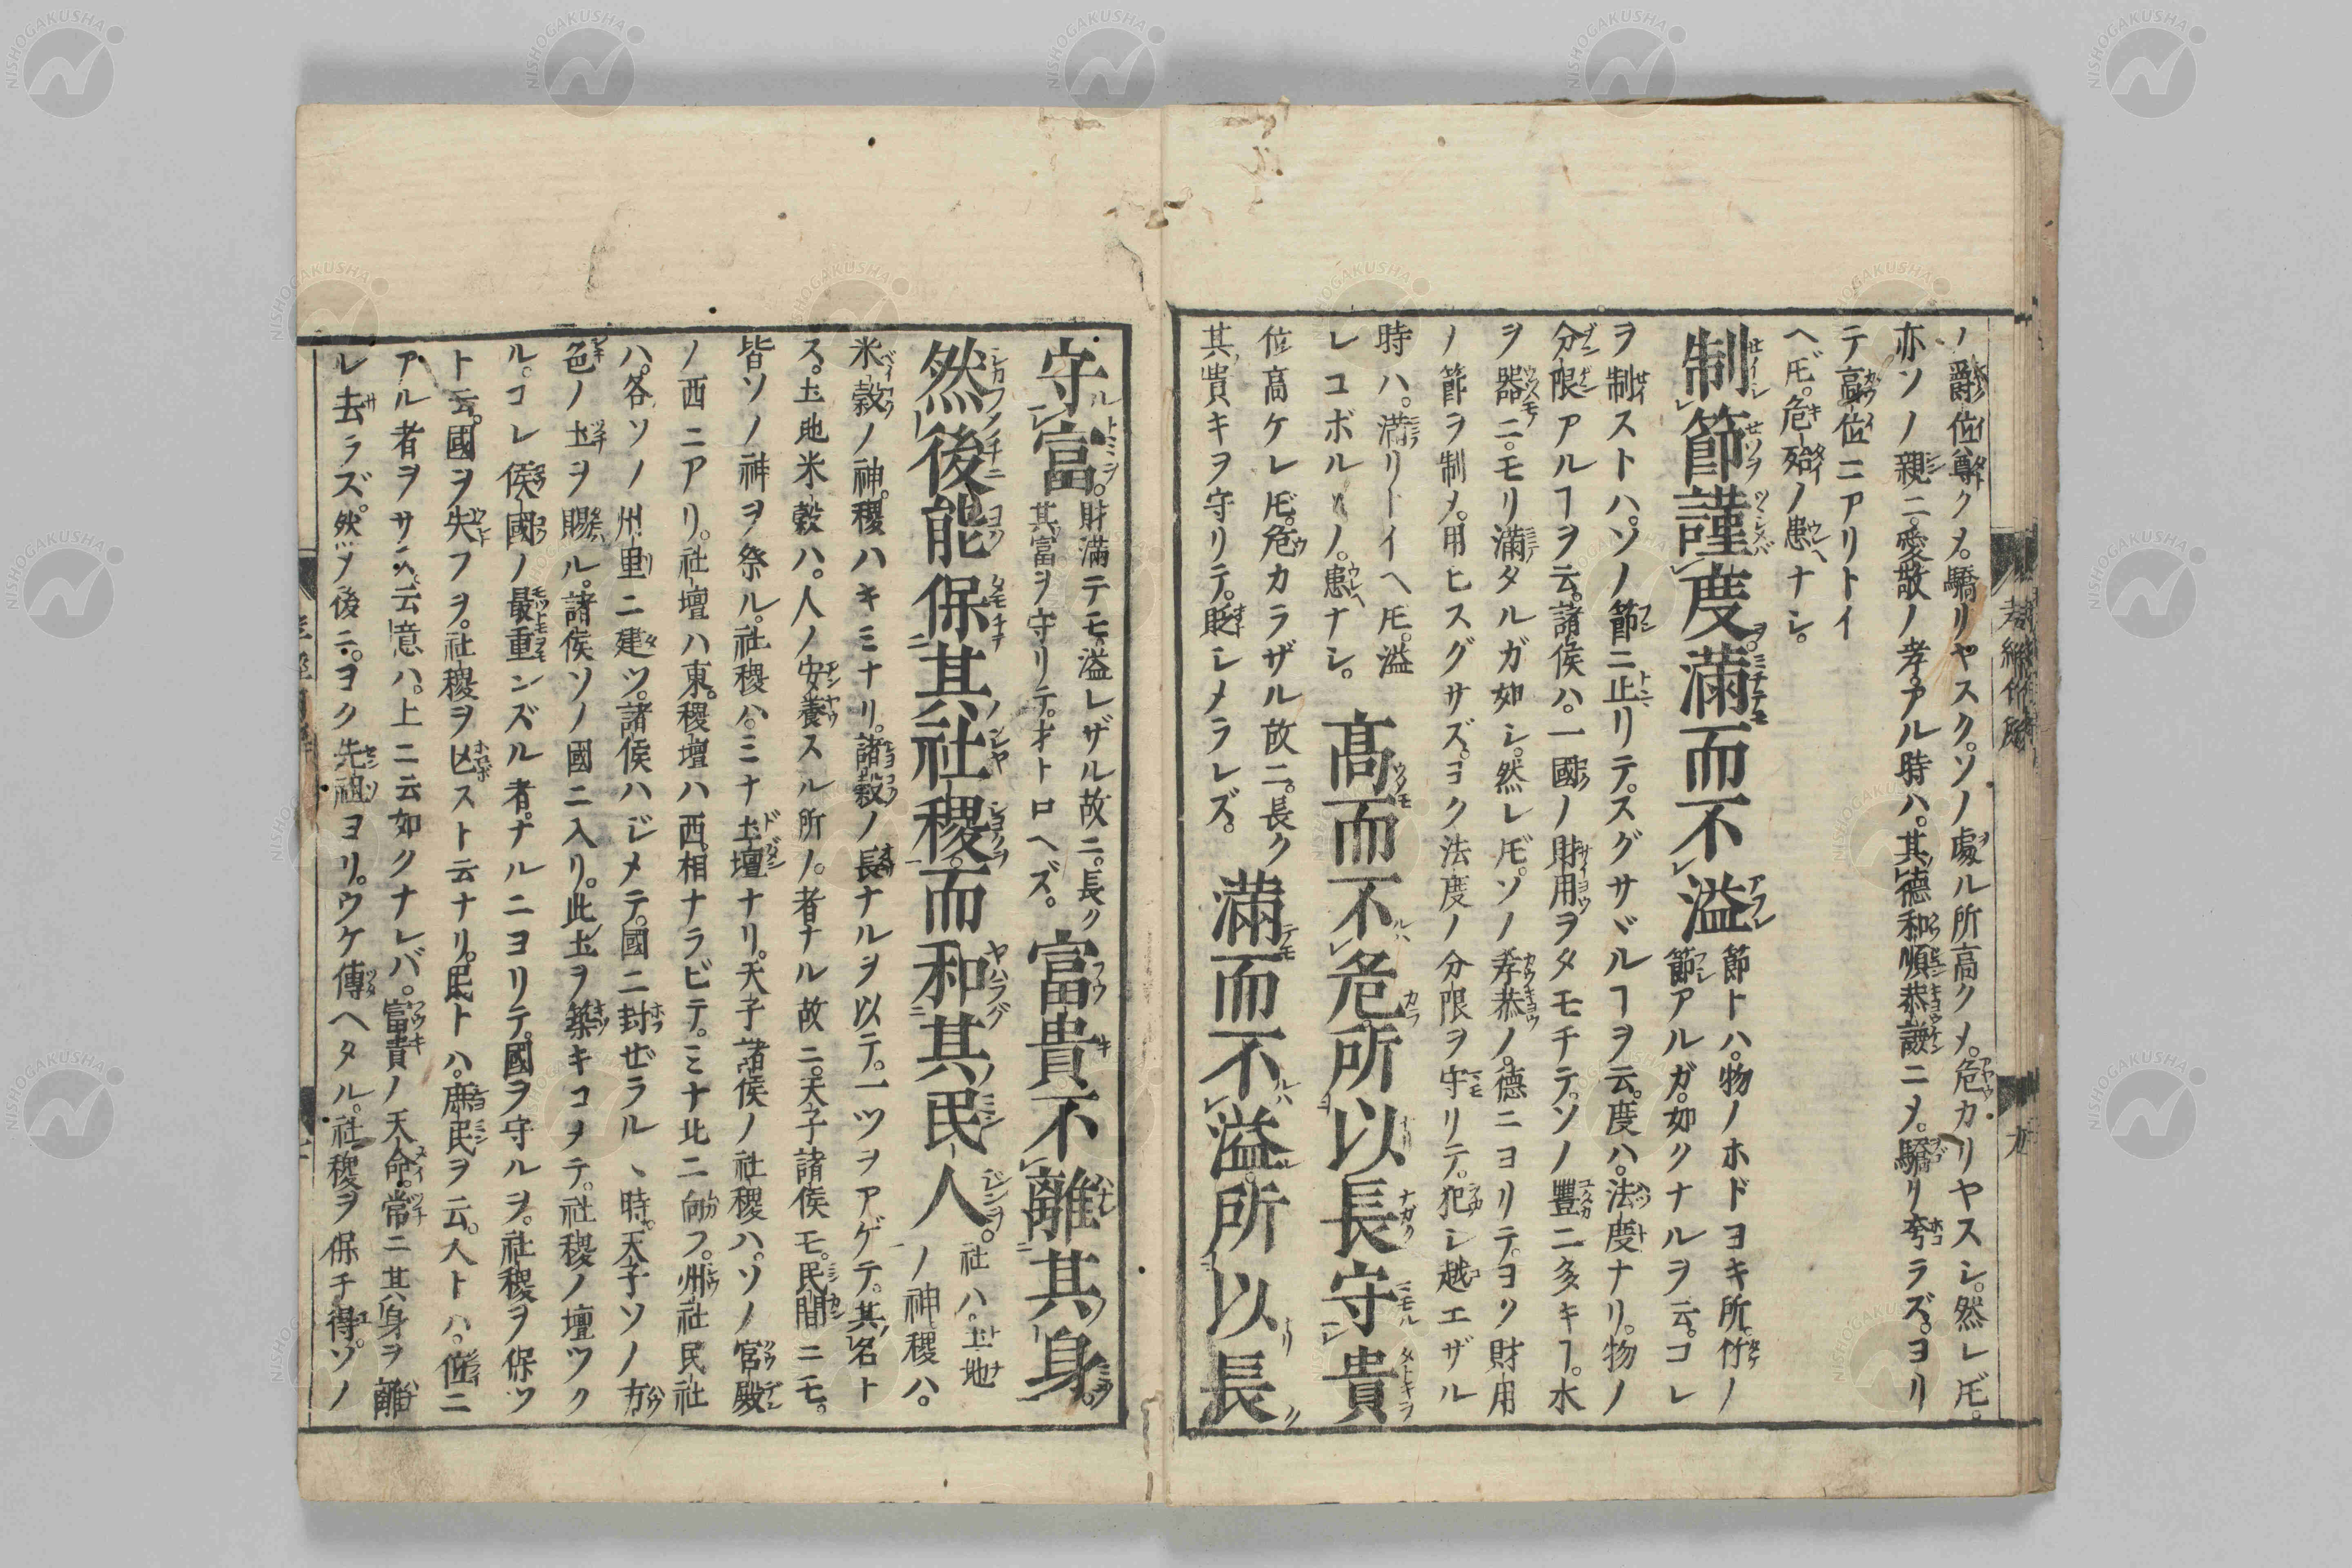 ノ爵位尊クメ。驕リヤスク。ソノ處ル所高クメ。危カリヤスシ。然レ𪜈。
亦ソノ親ニ。愛敬ノ孝アル時ハ。其德和順恭謙ニメ。驕リ夸ラズ。ヨリ
テ高位ニアリトイ
ヘ𪜈。危殆ノ患ナシ。
制節謹度滿而不溢
節トハ。物ノホドヨキ所。竹ノ
節アルガ。如クナルヲ云。コレ
ヲ制ストハ。ソノ節ニ止リテ。スグサヾルヿヲ云。度ハ。法度ナリ。物ノ
分限アルヿヲ云。諸侯ハ。一國ノ財用ヲタモチテ。ソノ豐ニ多キヿ。水
ヲ器ニ。モリ滿タルガ如シ。然レ𪜈。ソノ孝恭ノ。德ニヨリテ。ヨク財用
ノ節ヲ制メ。用ヒスグサズ。ヨク法度ノ分限ヲ守リテ。犯シ越エザル
時ハ。滿リトイヘ𪜈。溢
レコボルヽノ。患ナシ。
高而不危所以長守貴
位高ケレ𪜈。危カラザル故ニ。長ク
其貴キヲ守リテ。貶シメラレズ。
滿而不溢。所以長
守富。
財滿テモ。溢レザル故ニ。長ク
其富ヲ守リテ。オトロヘズ。
富貴不離其身。
然後能保其社稷。而和其民人。
社ハ。土地
ノ神。稷ハ。
米穀ノ神。稷ハキミナリ。諸穀ノ長ナルヲ以テ。一ツヲアゲテ。其名ト
ス。土地米穀ハ。人ノ安養スル所ノ。者ナル故ニ。天子諸侯モ。民間ニモ。
皆ソノ神ヲ祭ル。社稷ハ。ミナ土壇ナリ。天子諸侯ノ社稷ハ。ソノ宮殿
ノ西ニアリ。社壇ハ東。稷壇ハ西。相ナラビテ。ミナ北ニ向フ。州社民社
ハ。各ソノ州里ニ建ツ。諸侯ハジメテ。國ニ封ゼラルヽ時。天子ソノ方
色ノ土ヲ賜ル。諸侯ソノ國ニ入リ。此土ヲ築キコメテ。社稷ノ壇ツク
ル。コレ侯國ノ最重ンズル者ナルニヨリテ。國ヲ守ルヲ。社稷ヲ保ツ
ト云。國ヲ失フヲ。社稷ヲ亡スト云ナリ。民トハ。庶民ヲ云。人トハ。位ニ
アル者ヲサス。云意ハ。上ニ云如クナレバ。富貴ノ天命。常ニ其身ヲ離
レ去ラズ。然メ後ニ。ヨク先祖ヨリ。ウケ傳ヘタル。社稷ヲ保チ得。ソノ